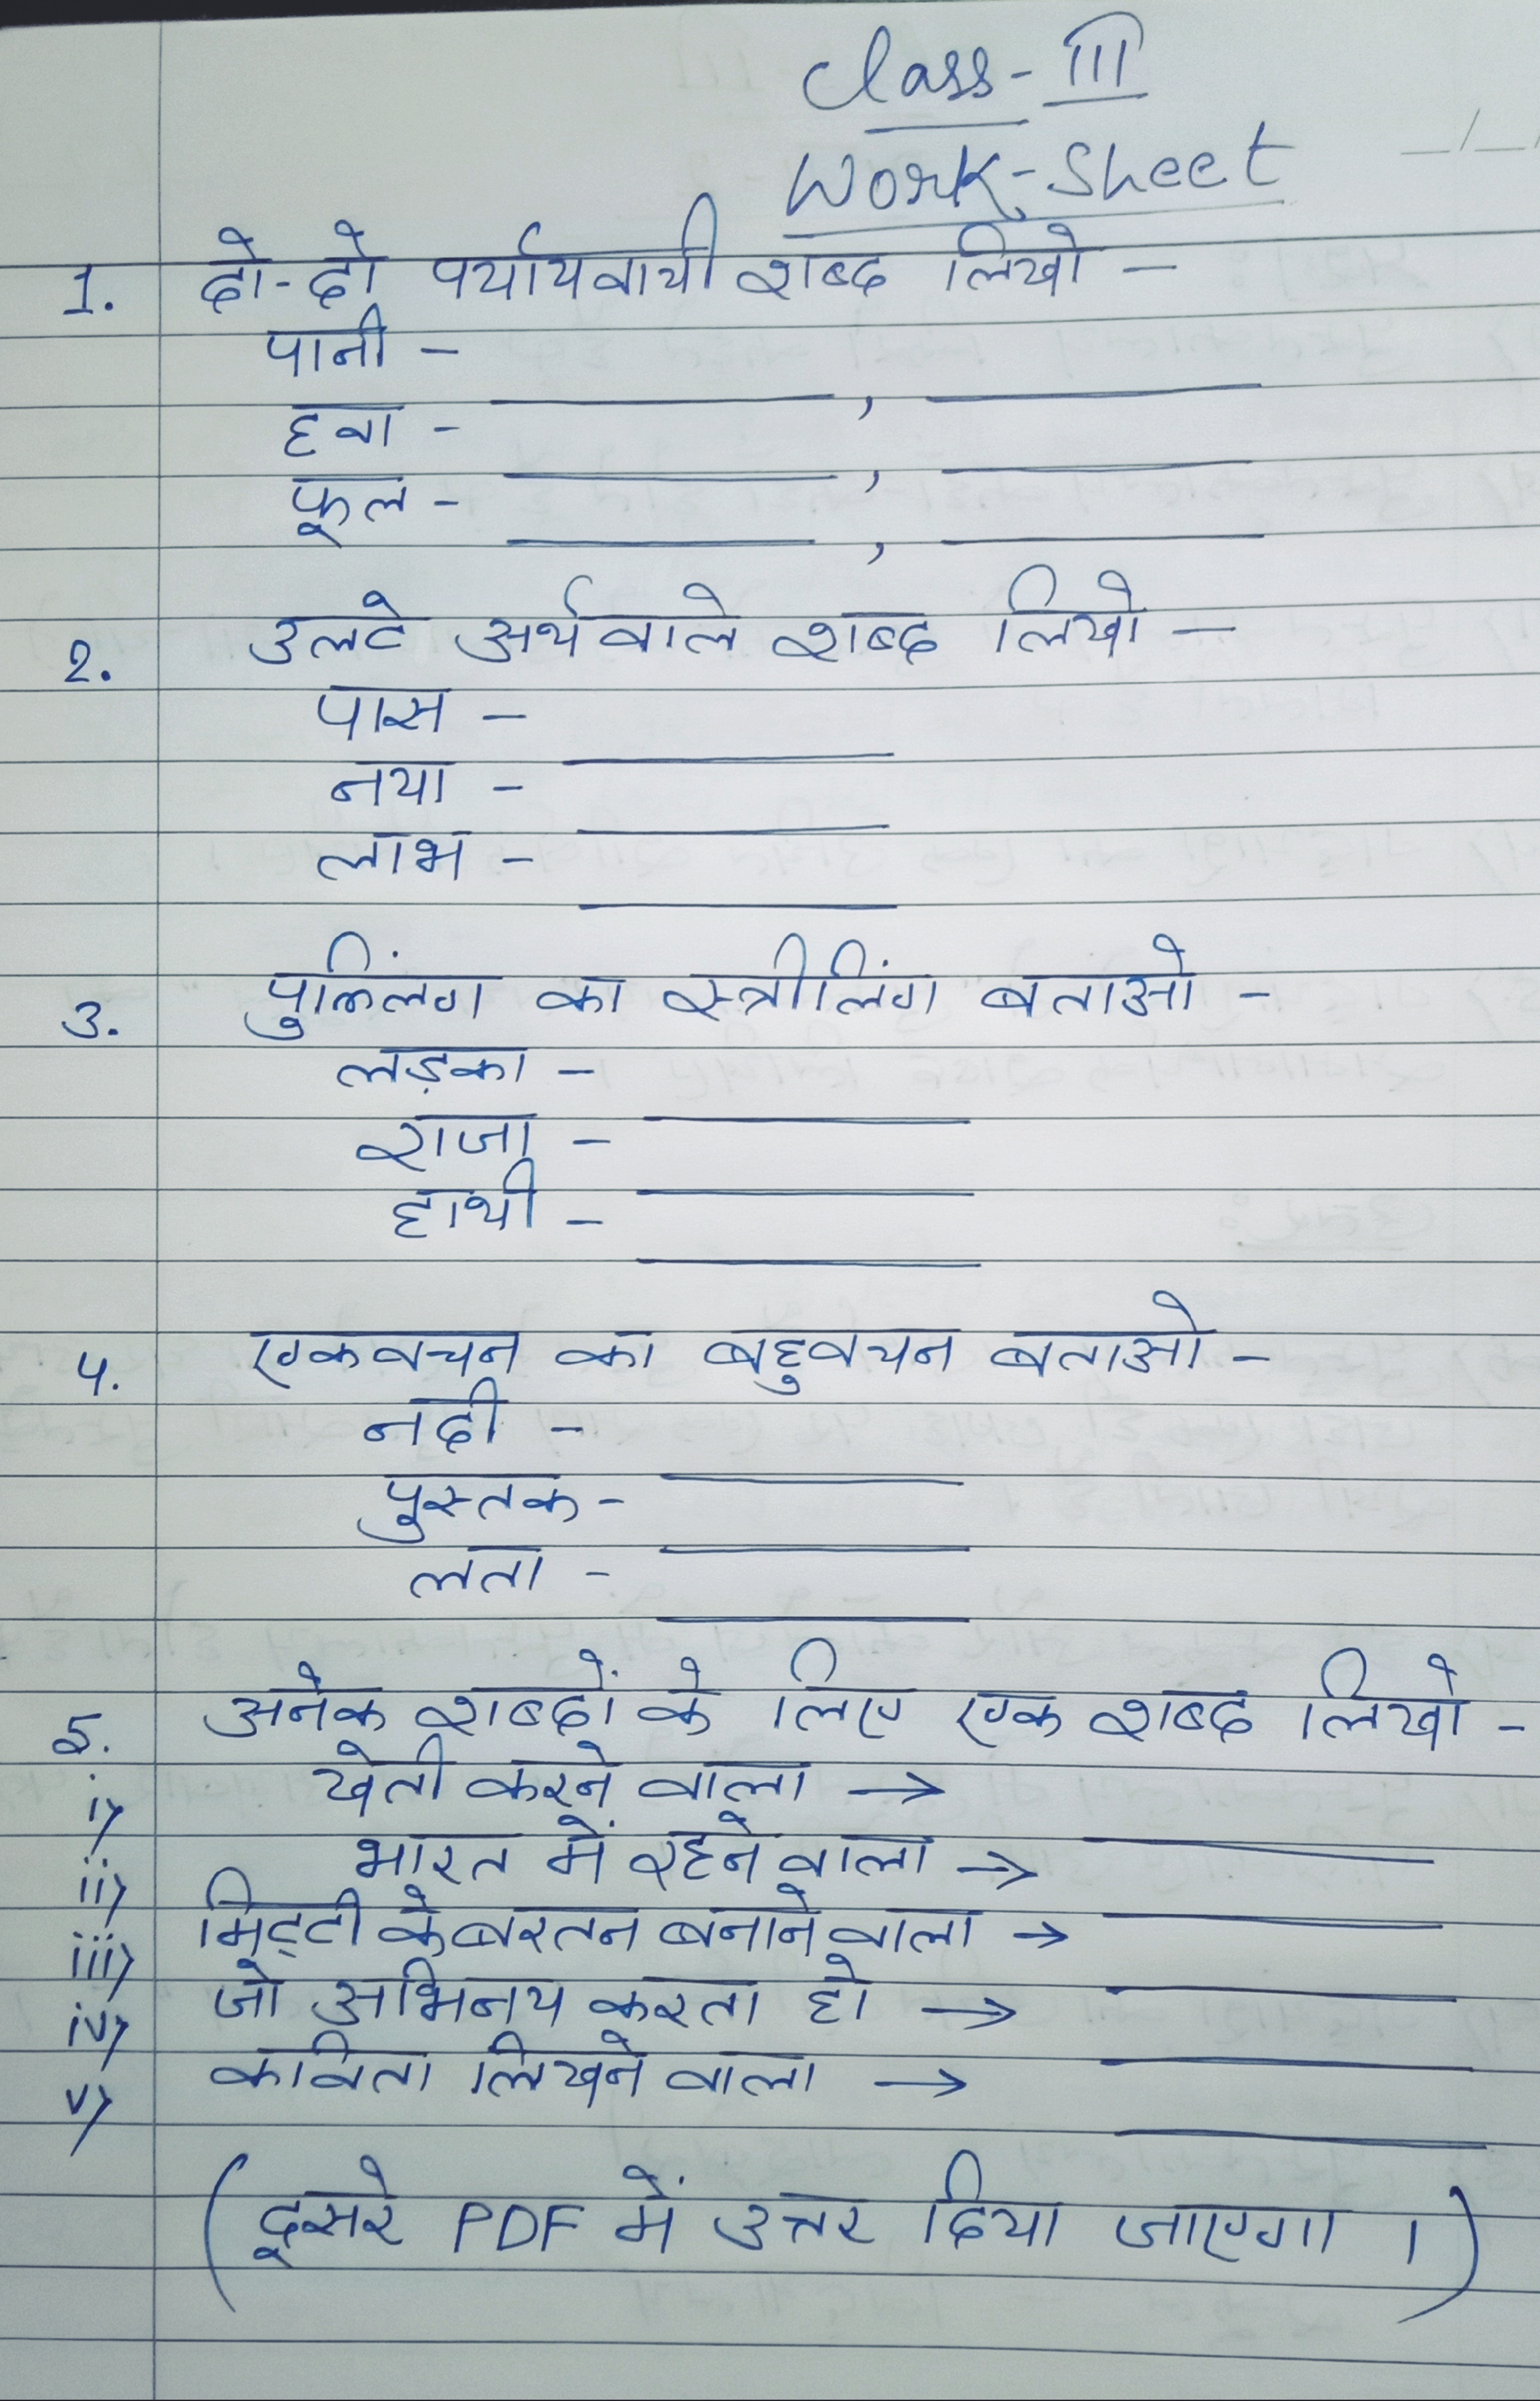 Class - III
Work-Sheet
_/_/
1. दो-दो पर्यायवाची शब्द लिखो -
पानी - ______ , ______
हवा - ______ , ______
फूल - ______ , ______
2. उलटे अर्थ वाले शब्द लिखो -
पास - ______
नया - ______
लाभ - ______
3. पुल्लिंग का स्त्रीलिंग बताओ -
लड़का - ______
राजा - ______
हाथी - ______
4. एकवचन का बहुवचन बताओ -
नदी - ______
पुस्तक - ______
लता - ______
5. अनेक शब्दों के लिए एक शब्द लिखो -
i) खेती करने वाला → ______
ii) भारत में रहने वाला → ______
iii) मिट्टी के बरतन बनाने वाला → ______
iv) जो अभिनय करता हो → ______
v) कविता लिखने वाला → ______
(दूसरे PDF में उत्तर दिया जाएगा ।)